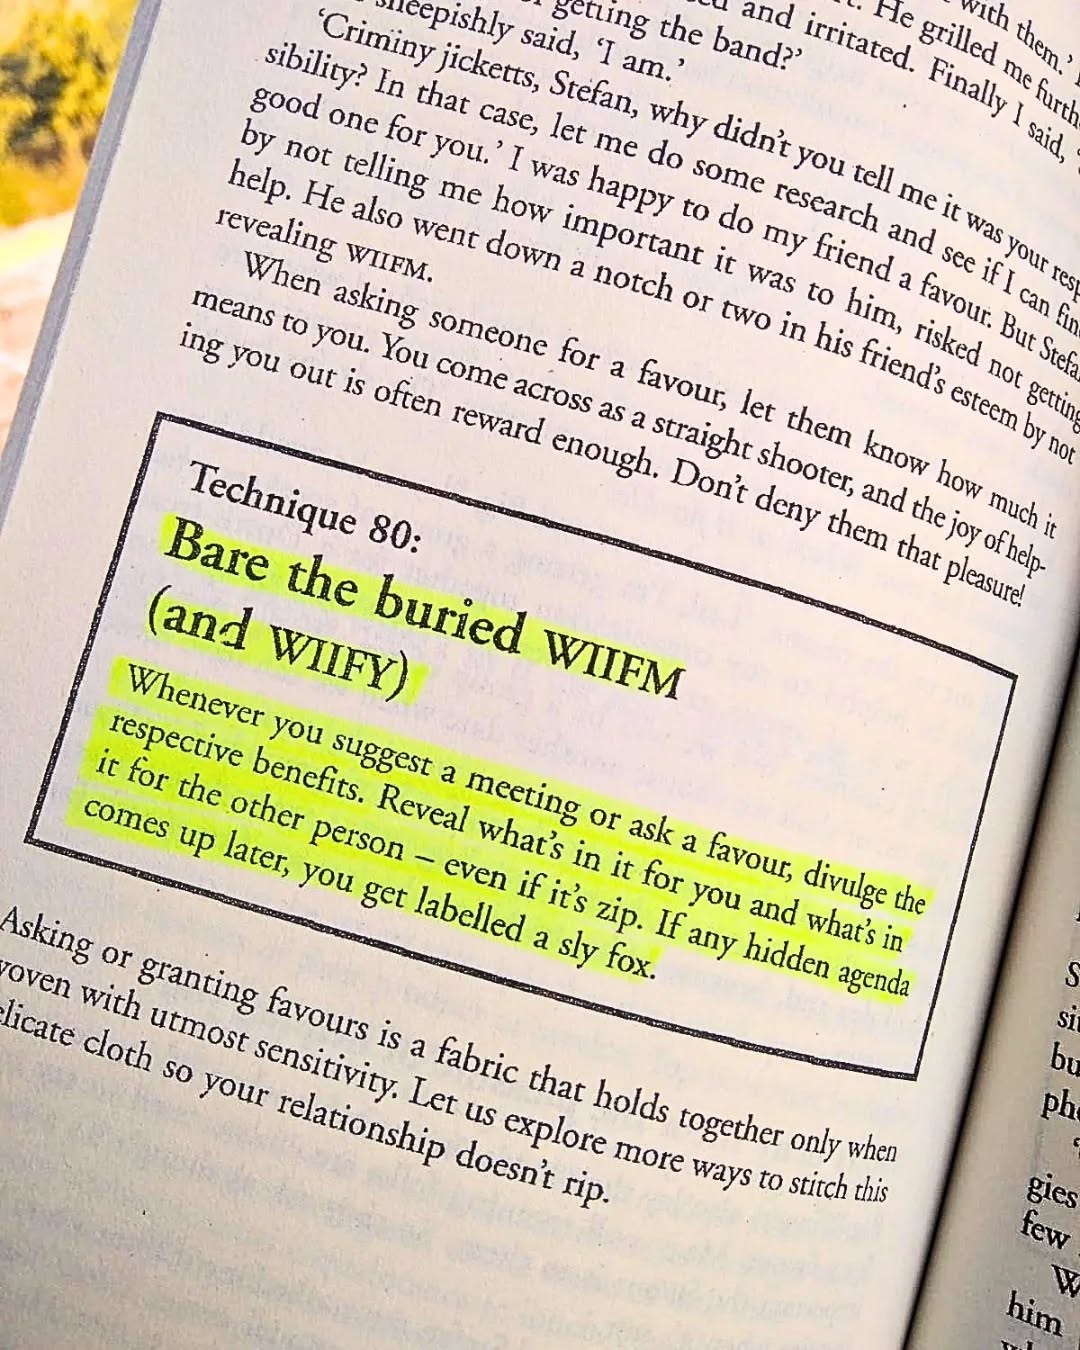 with them.'
t. He grilled me furth
ed and irritated. Finally I said,
of getting the band?'
sheepishly said, 'I am.'
'Criminy jicketts, Stefan, why didn't you tell me it was your resp
sibility? In that case, let me do some research and see if I can fin
good one for you.' I was happy to do my friend a favour. But Stefa
by not telling me how important it was to him, risked not getting
help. He also went down a notch or two in his friend's esteem by not
revealing WIIFM.
When asking someone for a favour, let them know how much it
means to you. You come across as a straight shooter, and the joy of help-
ing you out is often reward enough. Don't deny them that pleasure!
Technique 80:
Bare the buried WIIFM
(and WIIFY)
Whenever you suggest a meeting or ask a favour, divulge the
respective benefits. Reveal what's in it for you and what's in
it for the other person – even if it's zip. If any hidden agenda
comes up later, you get labelled a sly fox.
Asking or granting favours is a fabric that holds together only when
woven with utmost sensitivity. Let us explore more ways to stitch this
elicate cloth so your relationship doesn't rip.
S
si
bu
pho
gies
few
W
him